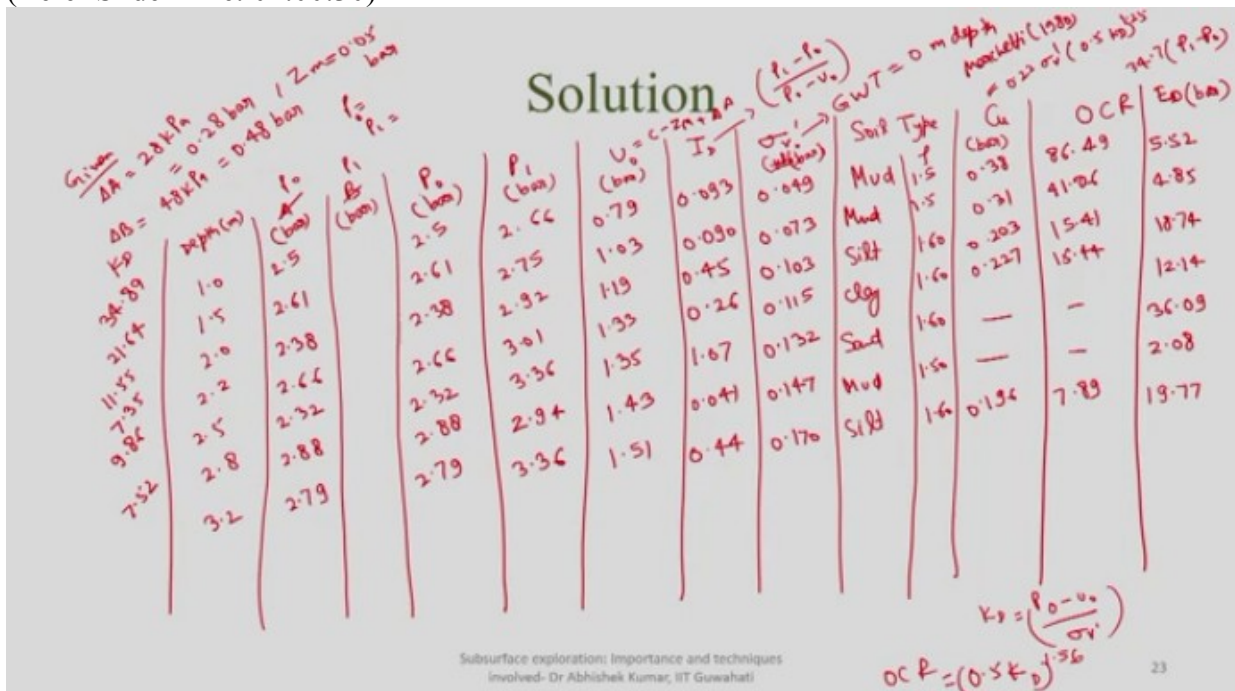 Solution
Given
ΔA = 28 kPa
= 0.28 bar, Zm = 0.05 bar
ΔB = 48 kPa = 0.48 bar
P0 =
P1 =
U0 = C - Zm + ΔA
(P1 - P0 / P0 - U0)
GWT = 0 m depth
Marchetti (1980)
0.22 σv' (0.5 KD)^1.25
34.7 (P1 - P0)
KD | Depth(m) | P0 A (bar) | P1 B (bar) | P0 (bar) | P1 (bar) | U0 (bar) | ID | σv' (bar) | Soil Type | ρ | Cu (bar) | OCR | ED (bar)
34.89 | 1.0 | 2.5 | | 2.5 | 2.66 | 0.79 | 0.093 | 0.049 | Mud | 1.5 | 0.38 | 86.49 | 5.52
21.64 | 1.5 | 2.61 | | 2.61 | 2.75 | 1.03 | 0.090 | 0.073 | Mud | 1.5 | 0.31 | 41.06 | 4.85
11.55 | 2.0 | 2.38 | | 2.38 | 2.92 | 1.19 | 0.45 | 0.103 | Silt | 1.60 | 0.203 | 15.41 | 18.74
7.35 | 2.2 | 2.66 | | 2.66 | 3.01 | 1.33 | 0.26 | 0.115 | Clay | 1.60 | 0.227 | 15.44 | 12.14
9.86 | 2.5 | 2.32 | | 2.32 | 3.36 | 1.35 | 1.07 | 0.132 | Sand | 1.60 | — | — | 36.09
2.8 | 2.88 | | 2.88 | 2.94 | 1.43 | 0.041 | 0.147 | Mud | 1.50 | — | — | 2.08
7.52 | 3.2 | 2.79 | | 2.79 | 3.36 | 1.51 | 0.44 | 0.170 | Silt | 1.60 | 0.196 | 7.89 | 19.77
KD = (P0 - u0 / σv')
OCR = (0.5 KD)^1.56
Subsurface exploration: Importance and techniques
involved- Dr Abhishek Kumar, IIT Guwahati
23